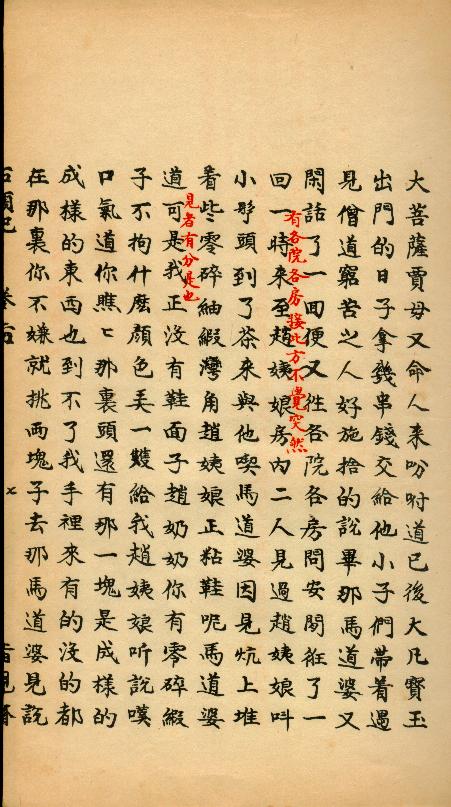 大菩薩賈母又命人来吩咐道已後大凡寳玉
出門的日子拿幾串錢交給他小子們帶着遇
見僧道窮苦之人好施捨的說畢那馬道婆又
閑話了一囬便又徃各院各房問安閑徃了一
有各院各房接此方不覺突然
回一時來至趙姨娘房內二人見過趙姨娘叫
小丫頭到了茶来與他喫馬道婆因見炕上堆
着些零碎紬緞灣角趙姨娘正粘鞋呢馬道婆
見者有分是也
道可是我正没有鞋面子趙奶奶你有零碎緞
子不拘什麽顔色弄一雙給我趙姨娘听說嘆
口氣道你瞧ヒ那裏頭還有那一塊是成樣的
成樣的東西也到不了我手裡來有的没的都
在那裏你不嫌就挑两塊子去那馬道婆見說